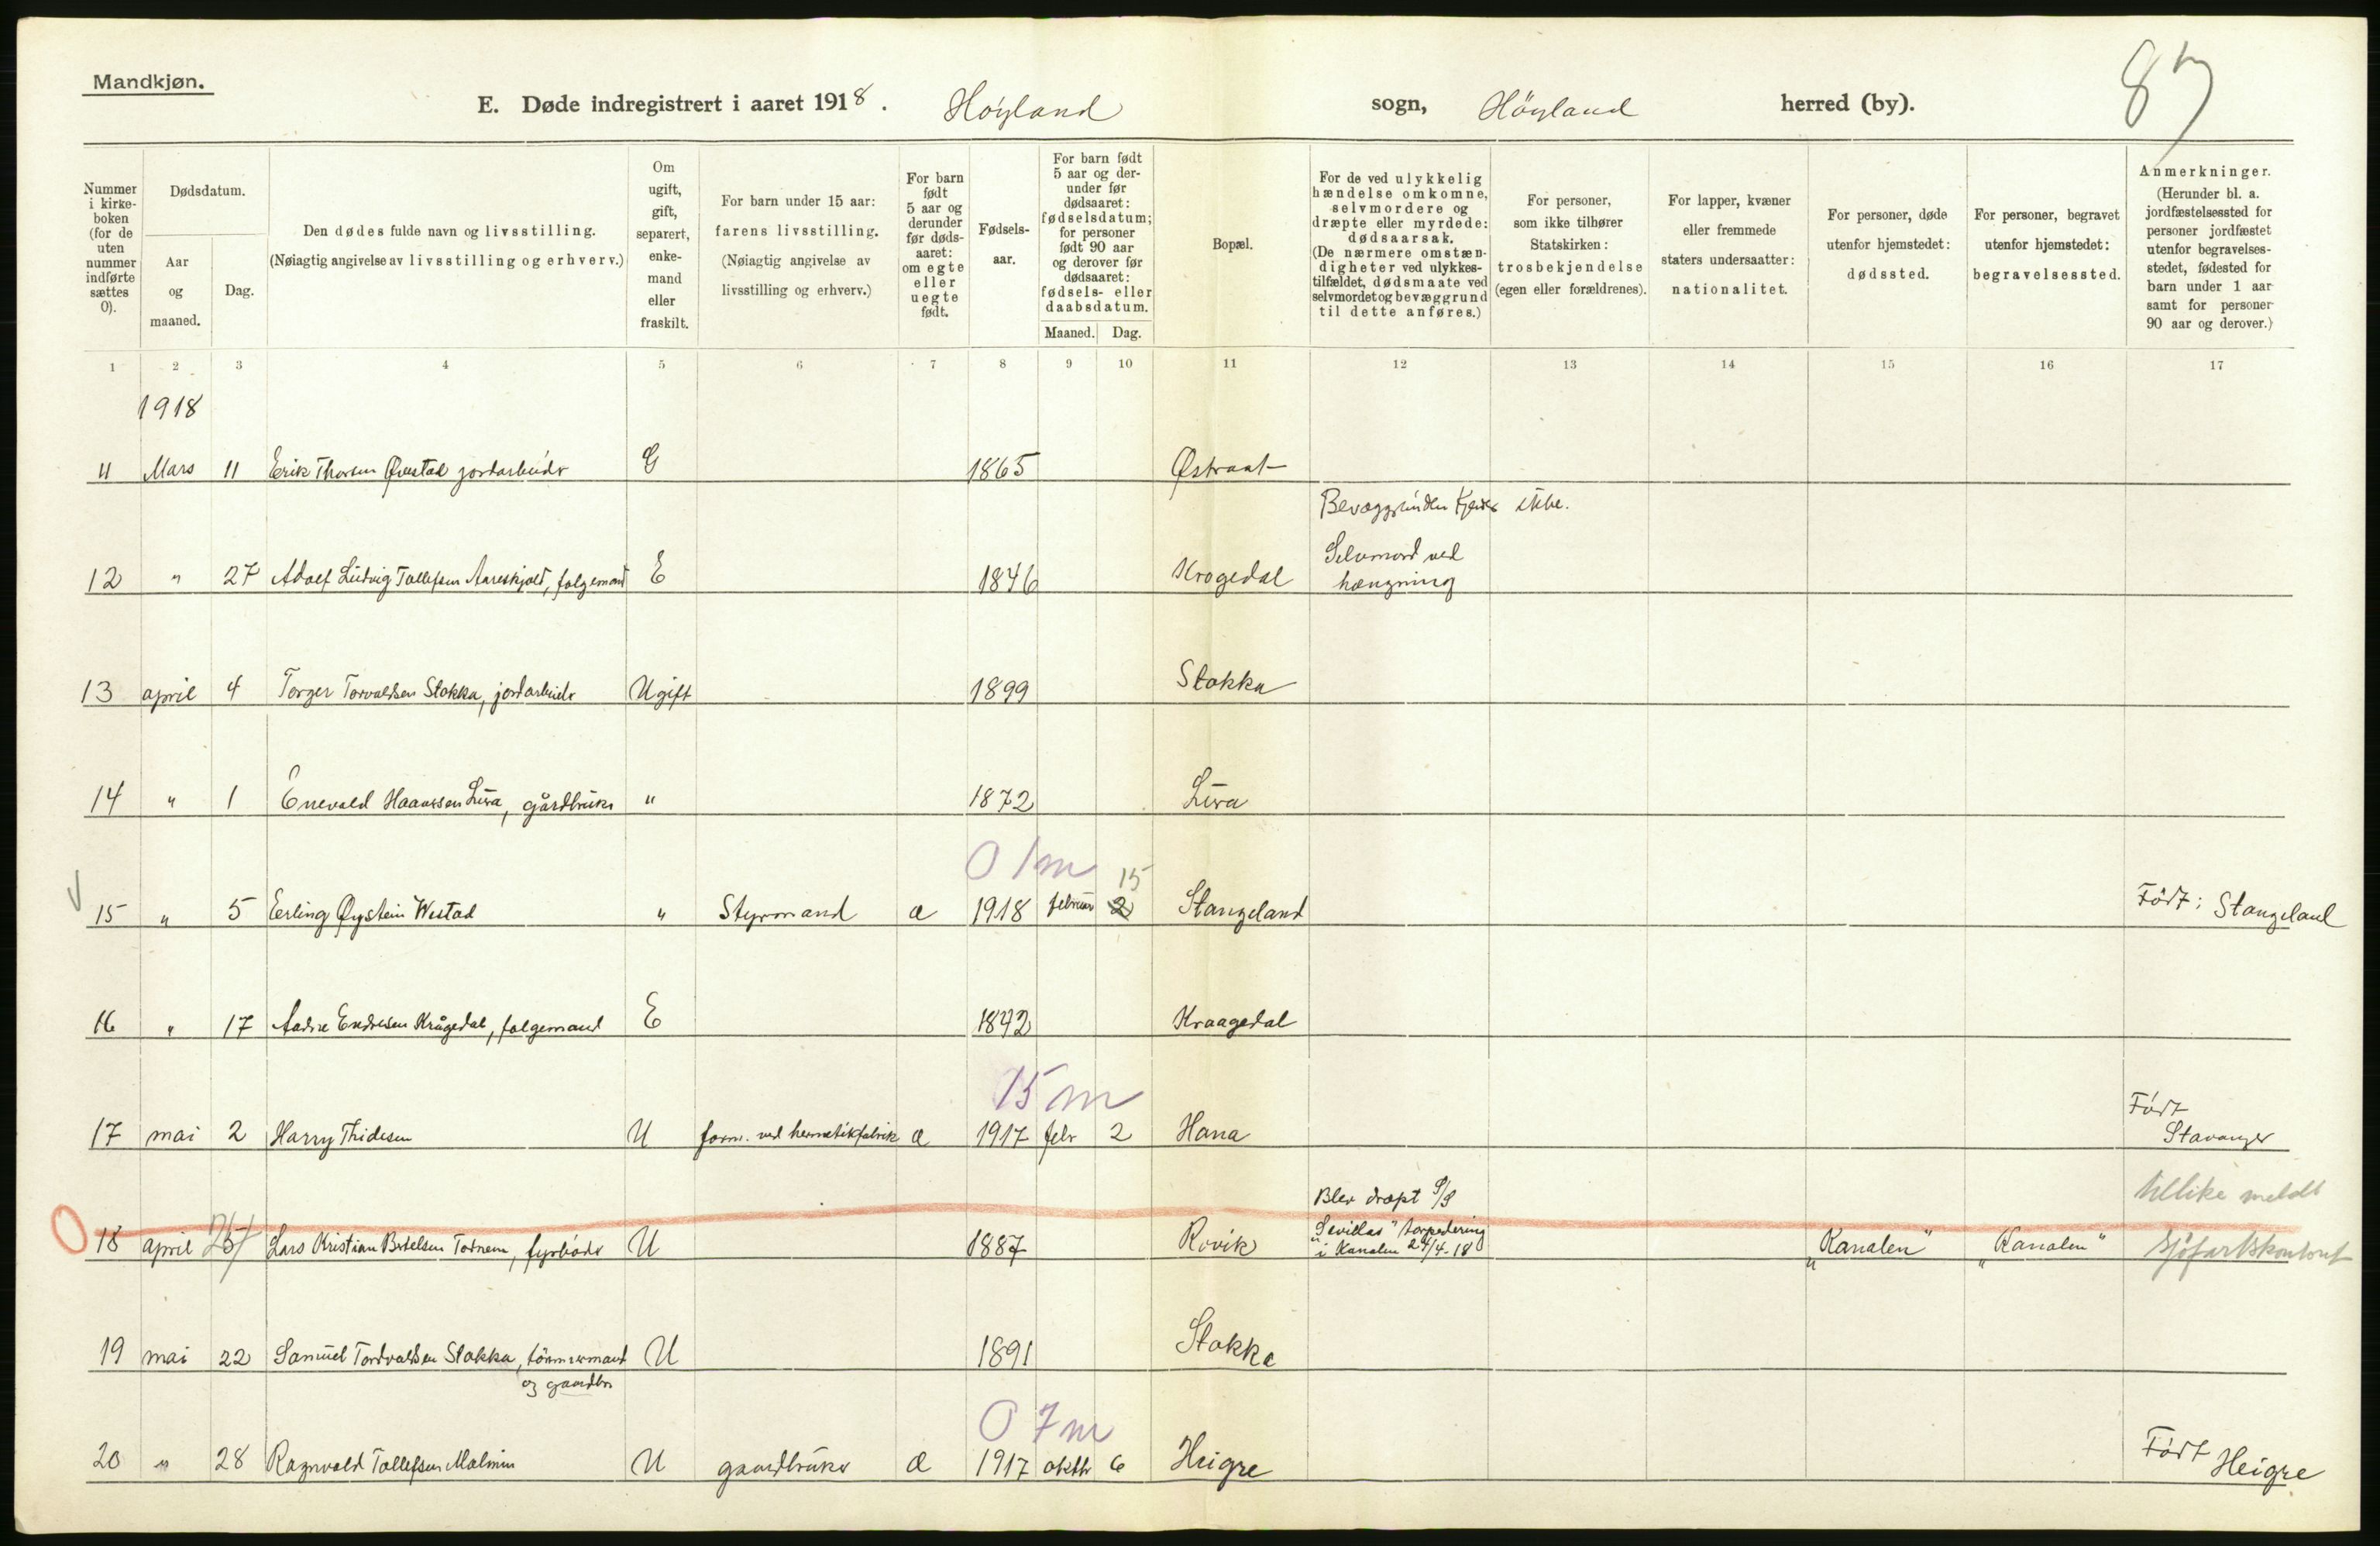 Mandkjøn.
E. Døde indregistrert i aaret 1918. Høyland sogn, Höyland herred (by).
87
Nummer i kirke- boken (for de uten nummer indførte sættes 0).
Dødsdatum.
Aar og maaned.
Dag.
Den dødes fulde navn og livsstilling.
(Nøiagtig angivelse av livsstilling og erhverv.)
Om ugift, gift, separert, enke- mand eller fraskilt.
For barn under 15 aar: farens livsstilling. (Nøiagtig angivelse av livsstilling og erhverv.)
For barn født 5 aar og derunder før døds- aaret: om egte eller uegte født.
Fødsels- aar.
For barn født 5 aar og der- under før dødsaaret: fødselsdatum; for personer født 90 aar og derover før dødsaaret: fødsels- eller daabsdatum.
Maaned. Dag.
Bopæl.
For de ved ulykkelig hændelse omkomne, selvmordere og dræpte eller myrdede: dødsaarsak. (De nærmere omstæn- digheter ved ulykkes- tilfældet, dødsmaate ved selvmordet og bevæggrund til dette anføres.)
For personer, som ikke tilhører Statskirken: trosbekjendelse (egen eller forældrenes).
For lapper, kvæner eller fremmede staters undersaatter: nationalitet.
For personer, døde utenfor hjemstedet: dødssted.
For personer, begravet utenfor hjemstedet: begravelsessted.
Anmerkninger. (Herunder bl. a. jordfæstelsessted for personer jordfæstet utenfor begravelses- stedet, fødested for barn under 1 aar samt for personer 90 aar og derover.)
1 2 3 4 5 6 7 8 9 10 11 12 13 14 15 16 17
1918
11 Mars 11 Erik Thorsen Qvestad jordarbeider G 1865 Østraat
Bevæggrunden kjendes ikke.
12 " 27 Adolf Ludvig Tollefsen Aareskjold, folgemand E 1846 Krogedal Selvmord ved
hængning
13 april 4 Torger Torvaldsen Stokka, jordarbeider Ugift 1899 Stokka
14 " 1 Enevald Haanssen Lura, gårdbruker " 1872 Lura
0 1m
15
15 " 5 Eerling Øystein Westad " Styrmand a 1918 februar 2 Stangeland Født: Stangeland
16 " 17 Aadne Endresen Krågedal, folgemand E 1842 Kraagedal
15 m
17 mai 2 Harry Thidesen U form. ved hermetikfabrik a 1917 febr 2 Hana Født
Stavanger
Blev dræpt v/d
tillike meldt
18 april 24 Lars Kristian Bertelsen Totnem, fyrbøder U 1887 Rovik "Sevillas" torpedering
i Kanalen 24/4-18 "Kanalen" "Kanalen" Sjøfartskontoret
19 mai 22 Samuel Tordvaldsen Stokka, tömmermand U 1891 Stokka
og gaardbr
0 7m
20 " 28 Ragnvald Tollefsen Malmin U gaardbruker a 1917 oktbr 6 Heigre Født Heigre